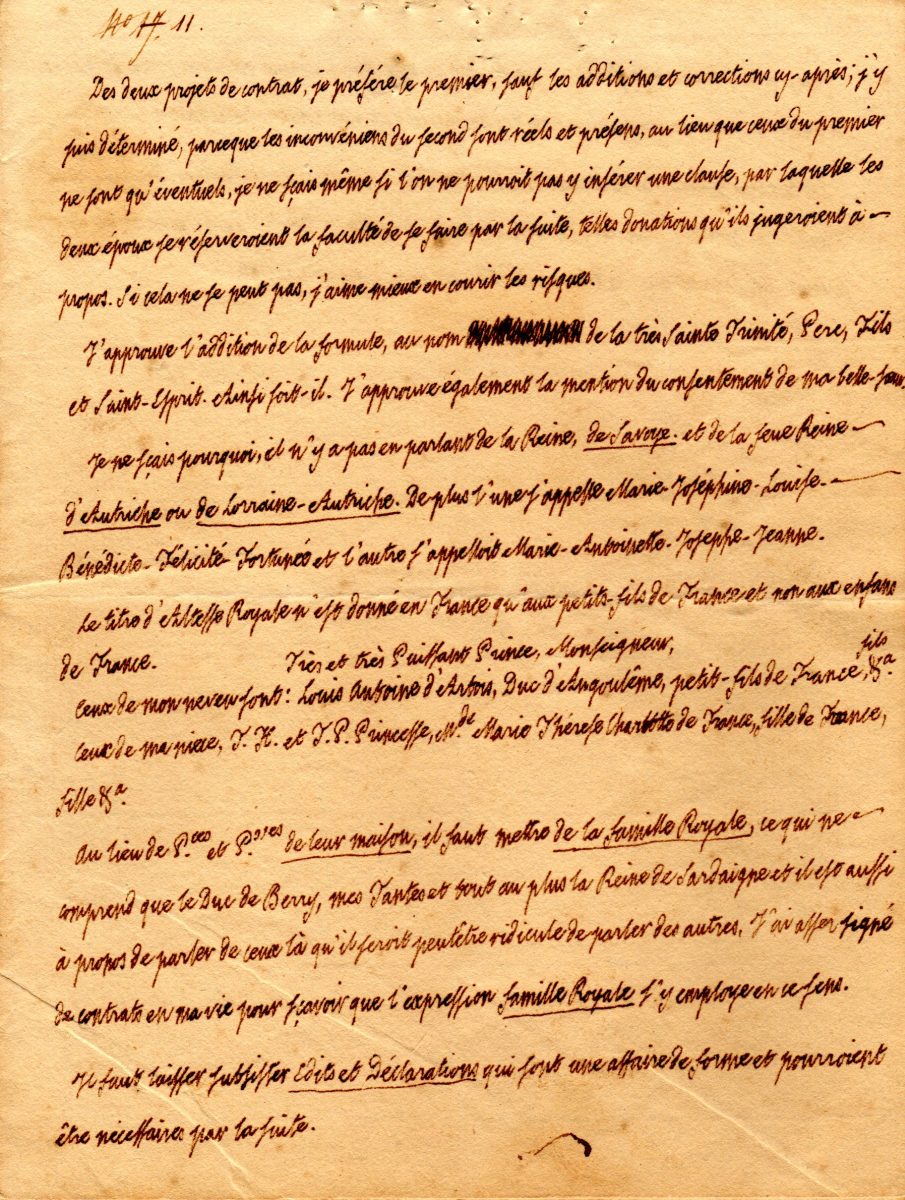 No 17. 11.
Des deux projets de contrat, je préfére le premier, sauf les additions et corrections cy-après; j'y
suis déterminé, parceque les inconvéniens du second sont réels et présens, au lieu que ceux du premier
ne sont qu'éventuels, je ne sçais même si l'on ne pourroit pas y insérer une clause, par laquelle les
deux époux se réserveroient la faculté de se faire par la suite, telles donations qu'ils jugeroient à
propos. Si cela ne se peut pas, j'aime mieux en courir les risques.
J'approuve l'addition de la formule, au nom de la très Sainte Trinité, Pere, Fils
et Saint-Esprit. Ainsi soit-il. J'approuve également la mention du consentement de ma belle-sœur,
Je ne sçais pourquoi, il n'y a pas en parlant de la Reine, de Savoye. et de la feue Reine
d'Autriche ou de Lorraine-Autriche. De plus l'une s'appelle Marie-Joséphine-Louise-
Bénédicte-Félicité-Fortunée et l'autre s'appelloit Marie-Antoinette-Josephe-Jeanne.
Le titre d'Altesse Royale n'est donné en France qu'aux petits-fils de France et non aux enfans
de France.
Très et très Puissant Prince, Monseigneur,
Ceux de mon neveu sont: Louis Antoine d'Artois, Duc d'Angoulême, petit-fils de France, fils &a
Ceux de ma niece, T. H. et T. P. Princesse, Mde Marie Thérese Charlotte de France, fille de France,
fille &a.
Au lieu de P.ces et P.sses de leur maison, il faut mettre de la famille Royale, ce qui ne
comprend que le Duc de Berry, mes Tantes et tout au plus la Reine de Sardaigne et il est aussi
à propos de parler de ceux là qu'il seroit peutêtre ridicule de parler des autres. J'ai assez signé
de contrats en ma vie pour sçavoir que l'expression famille Royale s'y employe en ce sens.
Il faut laisser subsister Edits et Déclarations qui sont une affaire de forme et pourroient
être nécessaires par la suite.